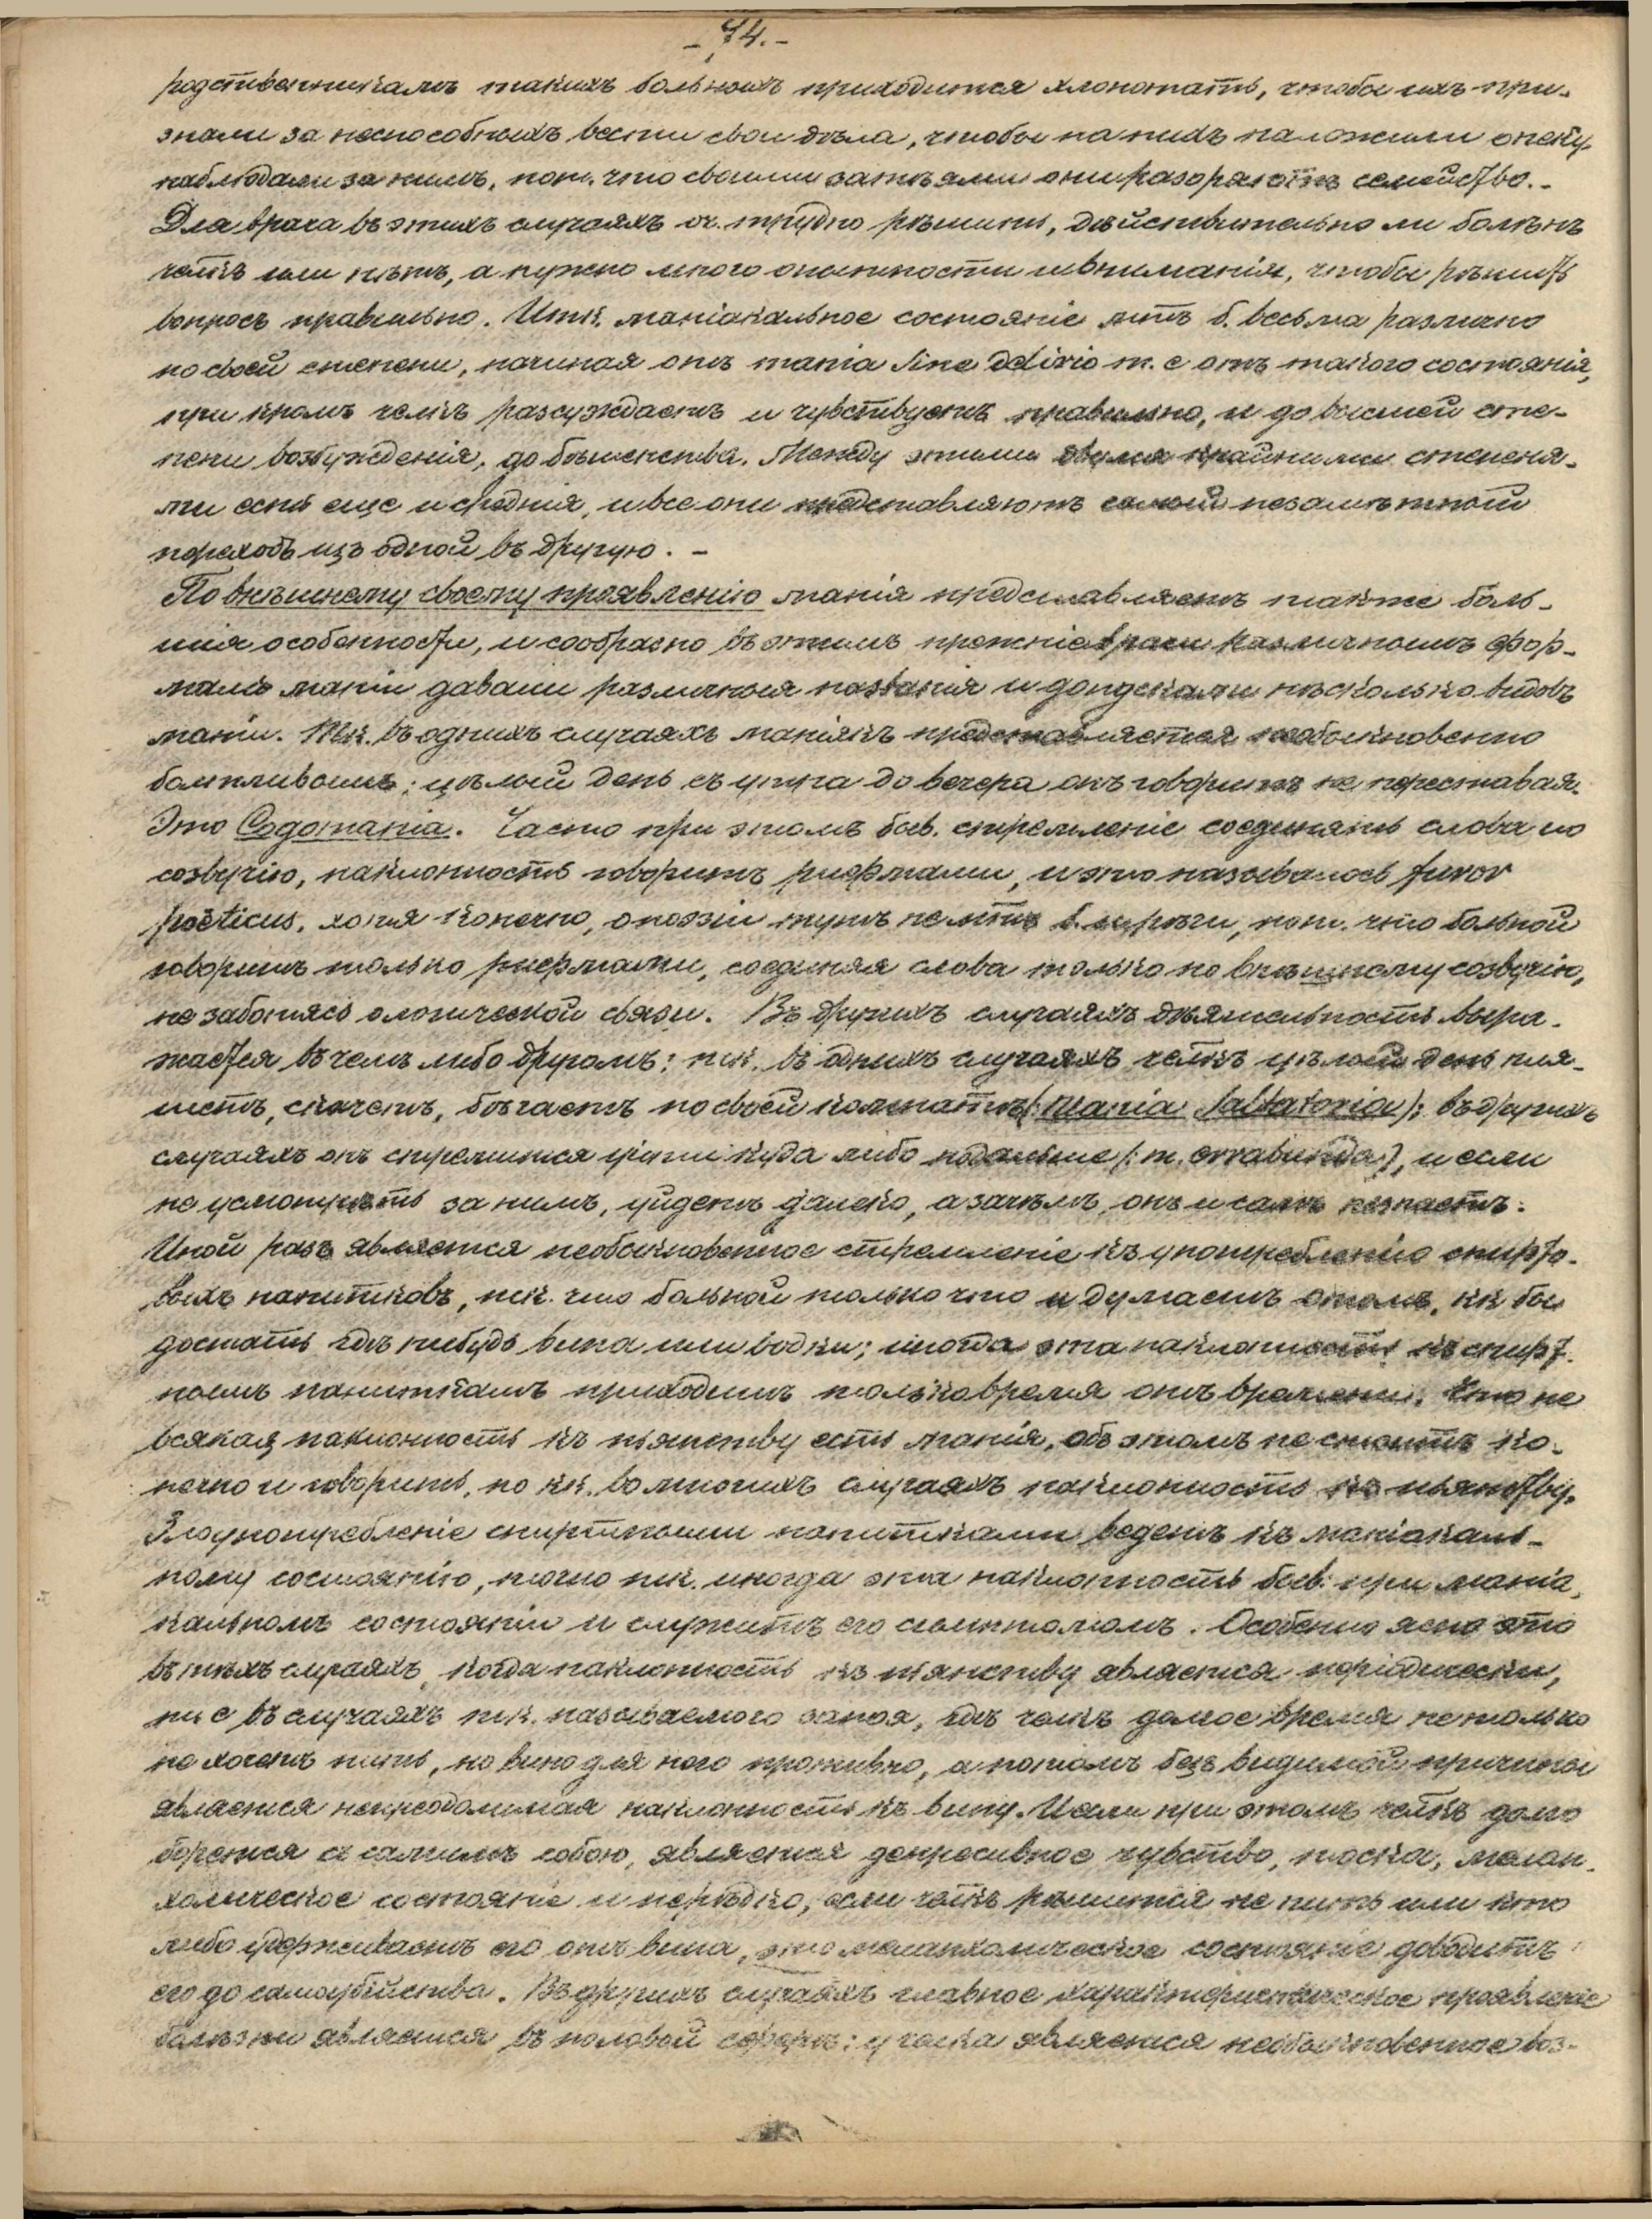 - 74. -
родственникамъ такихъ больныхъ приходится хлопотать, чтобы ихъ при-
знали за неспособныхъ вести свои дѣла, чтобы на нихъ наложили опеку,
наблюдали за нимъ, пот. что своими затѣями они разоряютъ семейство. -
Для врача въ этихъ случаяхъ оч. трудно рѣшить, дѣйствительно ли боленъ
челкъ или нѣтъ, а нужно много опытности и вниманія, чтобы рѣшить
вопросъ правильно. Итк. маніакальное состояніе мтъ б. весьма различно
по своей степени, начиная отъ mania sine delirio т. е отъ такого состоянія,
при кромъ челкъ разсуждаетъ и чувствуетъ правильно, и до высшей сте-
пени возбужденія, до бѣшенства. Между этими двумя крайними степеня-
ми есть еще и средніа, и все они представляютъ самый незамѣтный
переходъ изъ одной въ другую. -
По внѣшнему своему проявленію манія представляетъ также боль-
шія особенности, и сообразно въ этимъ прежніе врачи различнымъ фор-
мамъ маніи давали различныя названія и допускали нѣсколько видовъ
маніи. Тк. въ однихъ случаяхъ маніякъ представляется необыкновенно
болтливымъ; цѣлый день съ утра до вечера онъ говоритъ не переставая.
Это Logomania. Часто при этомъ быв. стремленіе соединять слова по
созвучію, наклонность говорить рифмами, и это называлось furor
poëticus, хотя конечно, о поэзіи тутъ не мтъ б. и рѣчи, пот. что больной
говоритъ только рифмами, соединяя слова только по внѣшнему созвучію,
не заботясь о логической связи. Въ другихъ случаяхъ дѣятельность выра-
жается въ чемъ либо другомъ: тк. въ однихъ случаяхъ челкъ цѣлый день пля-
шетъ, скачетъ, бѣгаетъ по своей комнатѣ (: Mania saltatoria :) въ другихъ
случаяхъ онъ стремится уйти куда либо подальше (: m. errabunda :), и если
не усмотрѣть за нимъ, уйдетъ далеко, а зачѣмъ, онъ и самъ незнаетъ.
Иной разъ является необыкновенное стремленіе къ употребленію спирто-
выхъ напитковъ, тк. что больной только что и думаетъ о томъ, кк бы
достать гдѣ нибудь вина или водки; иногда эта наклонность къ спирт-
нымъ напиткамъ приходитъ только время отъ времени. Что не
всякая наклонность къ пьянству есть манія, объ этомъ не стоитъ ко-
нечно и говорить, но кк. во многихъ случаяхъ наклонность къ пьянству,
Злоупотребленіе спиртными напитками ведетъ къ маніакаль-
ному состоянію, точно тк. иногда эта наклонность быв. при маніа-
кальномъ состояніи и служитъ его симптомомъ. Особенно ясно это
въ тѣхъ случаяхъ, когда наклонность къ пьянству является періодически,
т. е въ случаяхъ тк. называемого запоя, гдѣ челкъ долгое время не только
не хочетъ пить, но вино для него противно, а потомъ безъ видимой причины
является непреодолимая наклонность къ вину. И если при этомъ челкъ долго
борется съ самимъ собою, является депресивное чувство, тоска, мелан-
холическое состояніе и нерѣдко, если челкъ рѣшится не пить или кто
либо удерживаетъ его отъ вина, это меланхолическое состояніе доводитъ
его до самоубійства. Въ другихъ случаяхъ главное характеристическое проявленіе
болѣзни является въ половой сферѣ: у челка является необыкновенное воз-